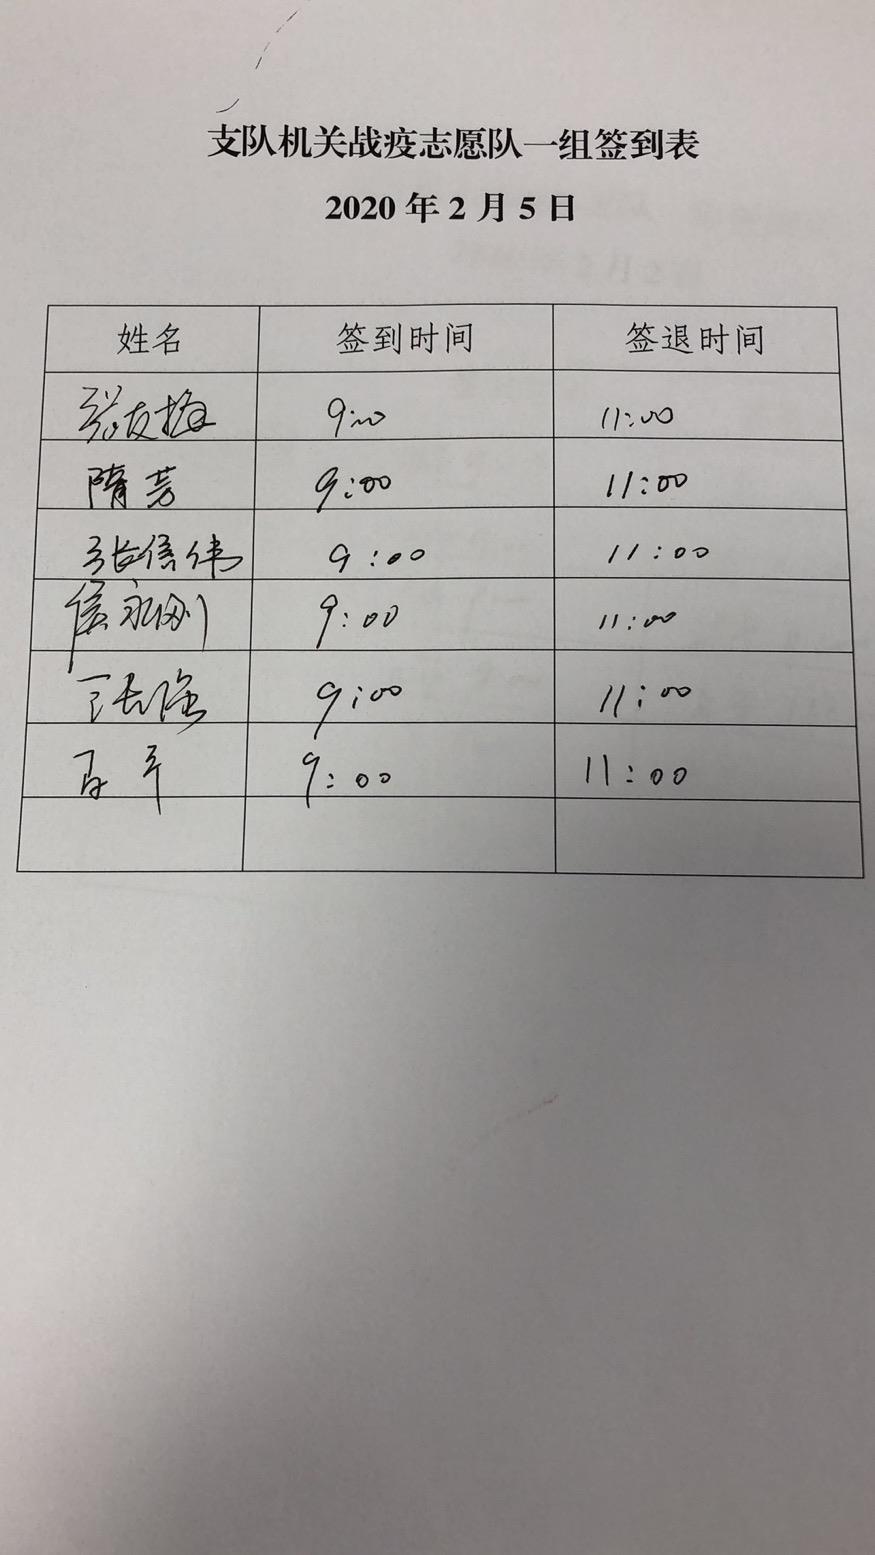 支队机关战疫志愿队一组签到表
2020 年 2 月 5 日
姓名 签到时间 签退时间
张友梅 9:00 11:00
隋芳 9:00 11:00
张信伟 9:00 11:00
侯永刚 9:00 11:00
9:00 11:00
9:00 11:00